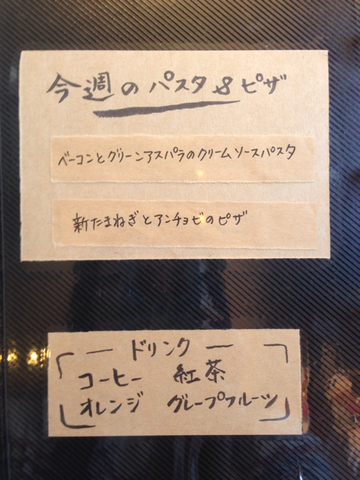 今週のパスタ&ピザ
ベーコンとグリーンアスパラのクリームソースパスタ
新たまねぎとアンチョビのピザ
ドリンク
コーヒー 紅茶
オレンジ グレープフルーツ